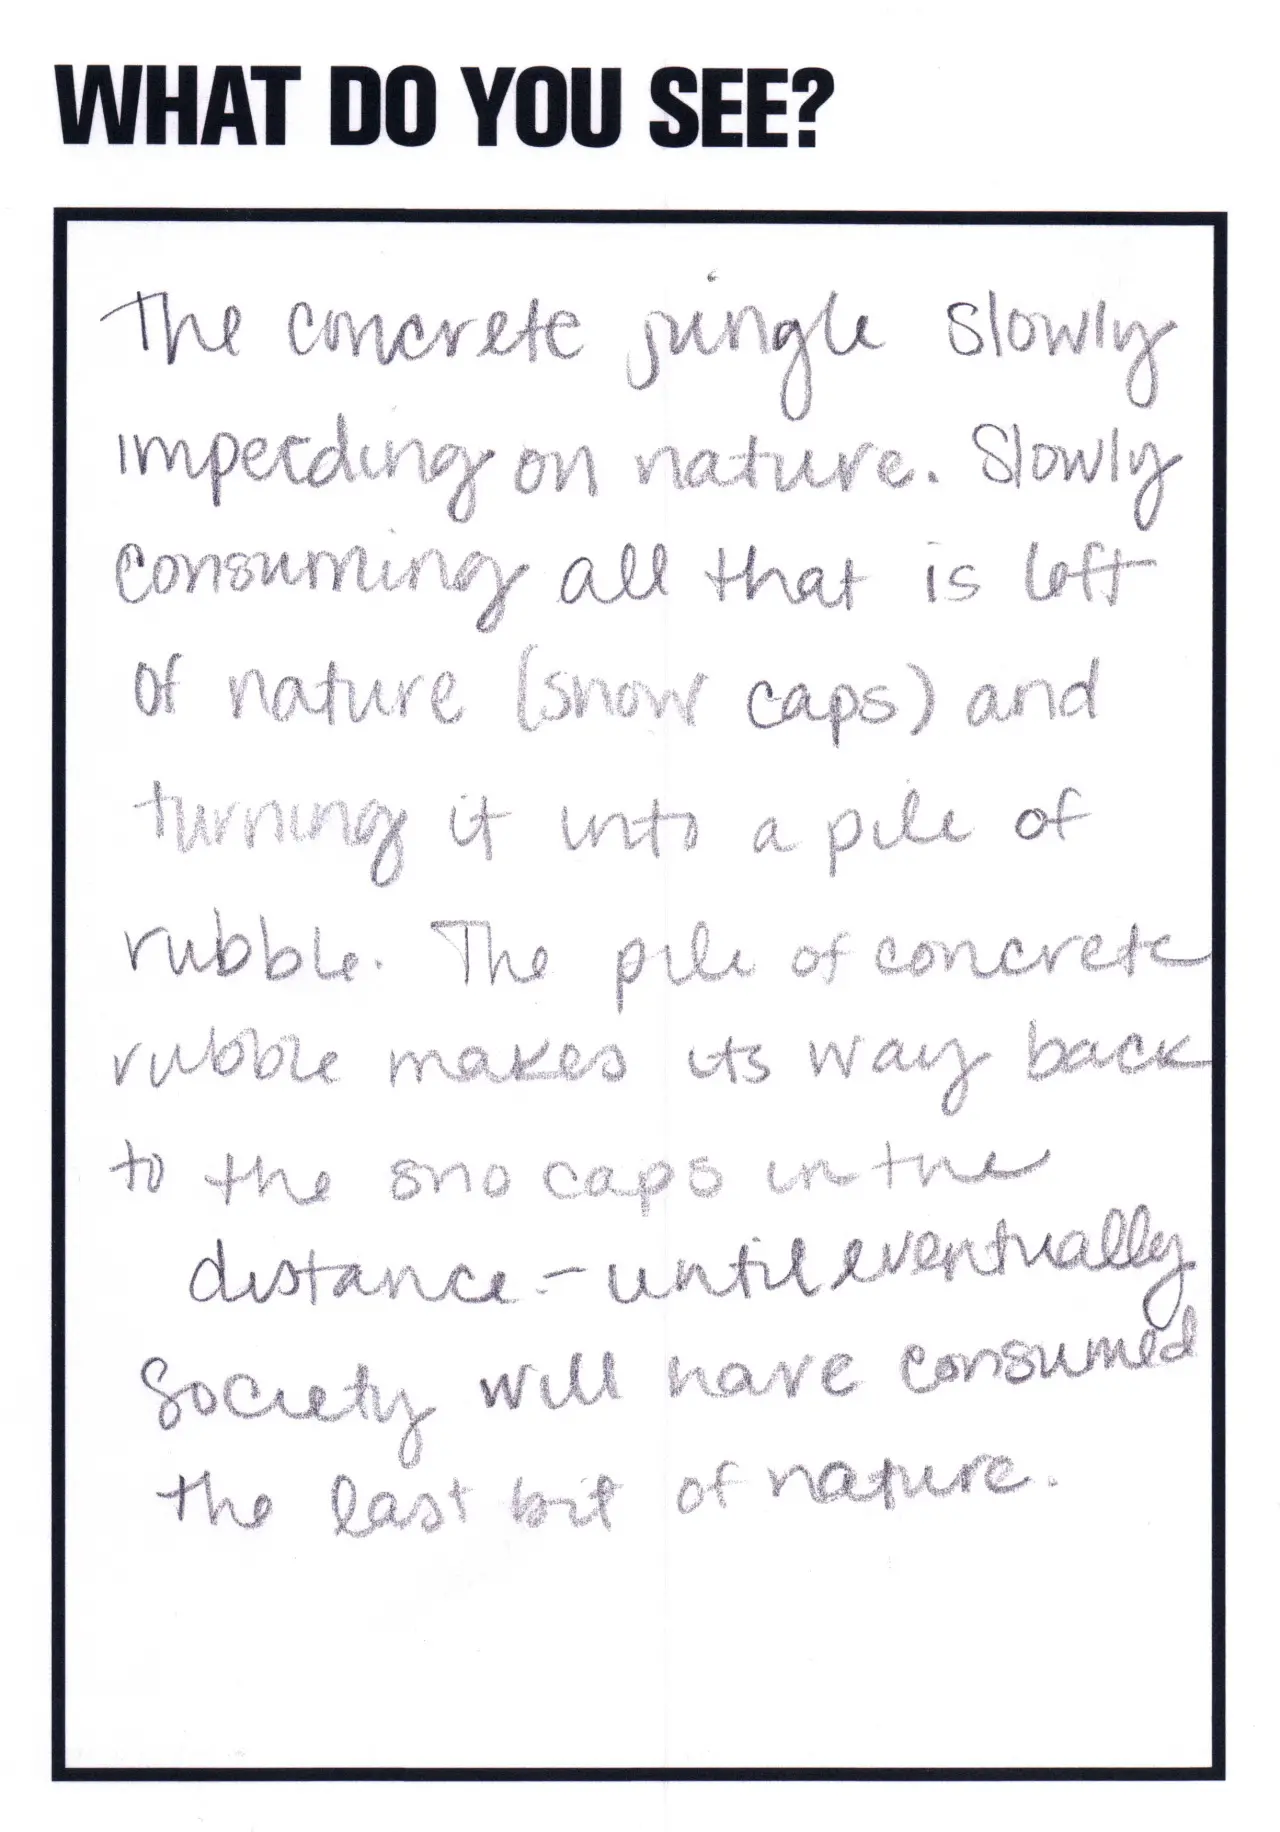 WHAT DO YOU SEE?
The concrete jungle slowly
impeeding on nature. Slowly
consuming all that is left
of nature (snow caps) and
turning it into a pile of
rubble. The pile of concrete
rubble makes its way back
to the sno caps in the
distance - until eventually
society will have consumed
the last bit of nature.